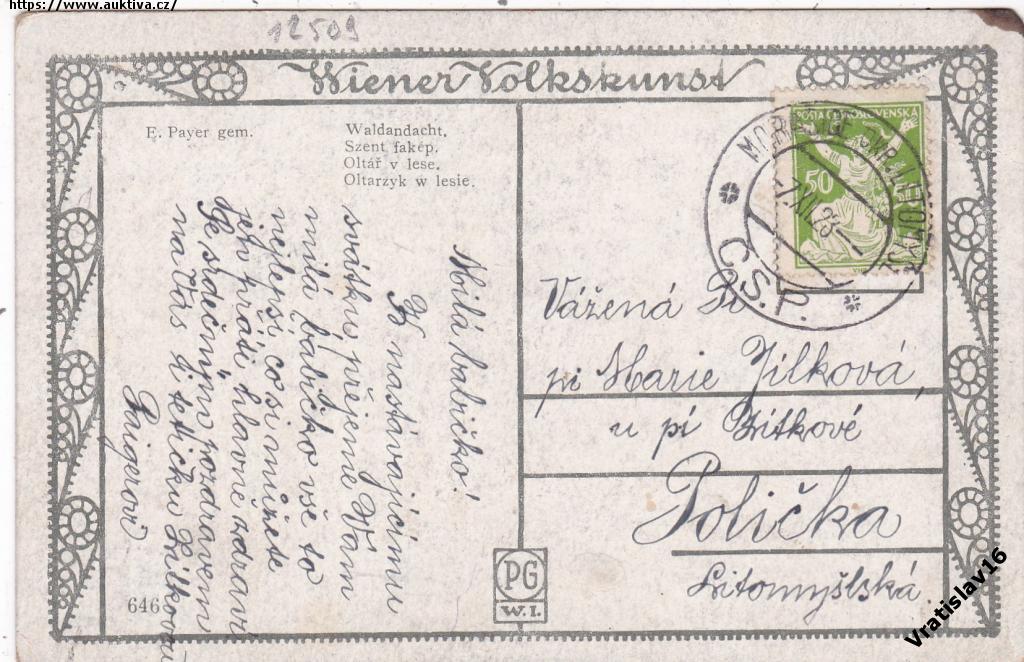 https://www.auktiva.cz/
12509
Wiener Volkskunst
E. Payer gem.
Waldandacht.
Szent fakép.
Oltář v lese.
Oltarzyk w lesie.
Milá babičko!
K nastávajícímu
svátku přejeme Vám
milá babičko vše to
nejlepsí co si můžete
jen přáti hlavně zdraví
Se srdečným pozdravem
na Vás i tetičku Žitkovou
646
POSTA ČESKOSLOVENSKA
50
ČS.P.
Vážená Pí
pí Marie Jílková
u pí Žitkové
Polička
Litomyšlská.
PG
W. I.
Vratislav16